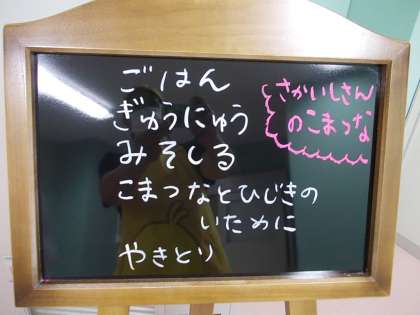 ごはん
ぎゅうにゅう
みそしる
こまつなとひじきの
いために
やきとり
さかいしさん
のこまつな